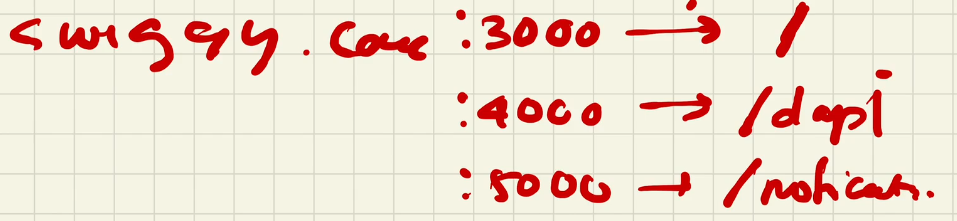 swiggy.com :3000 → /
:4000 → /dapi
:5000 → /noticatn.